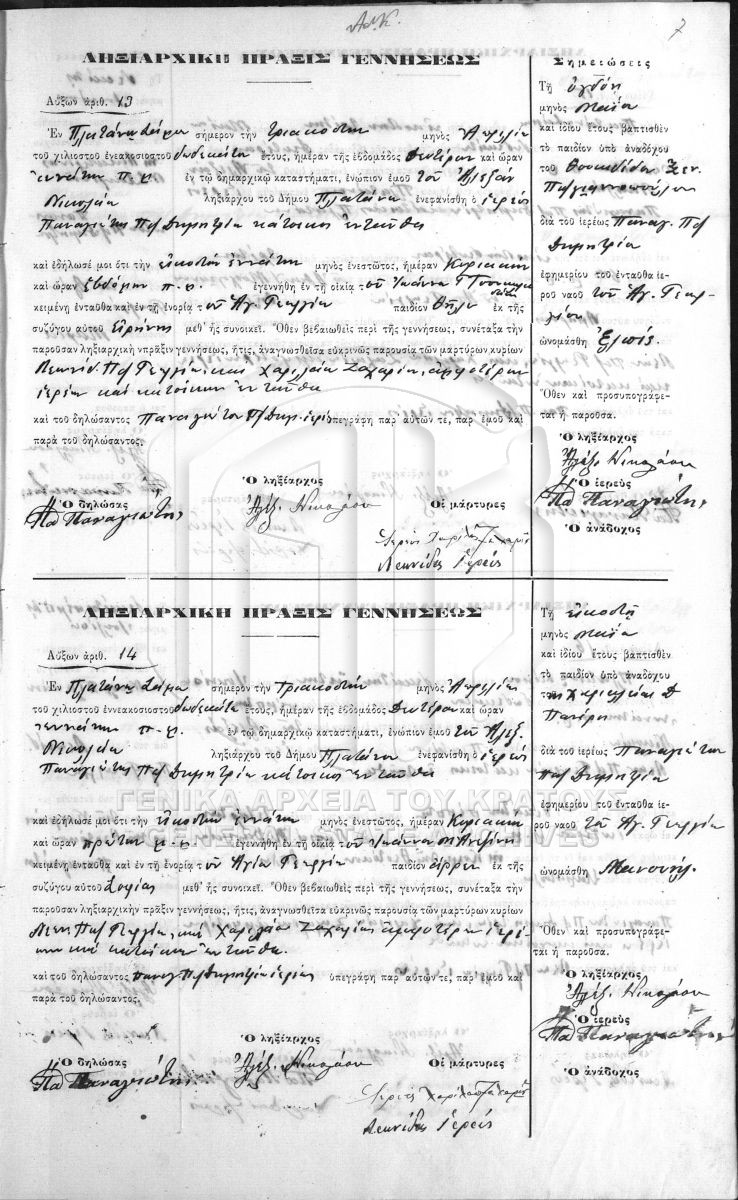 7
ΛΗΞΙΑΡΧΙΚΗ ΠΡΑΞΙΣ ΓΕΝΝΗΣΕΩΣ
Αὔξων ἀριθ. 13
Ἐν σήμερον τὴν τριακοστὴν μηνὸς Ἀπριλίου
τοῦ χιλιοστοῦ ἐνεακοσιοστοῦ δωδεκάτου ἔτους, ἡμέραν τῆς ἑβδομάδος Δευτέραν καὶ ὥραν
ἐννάτην π.μ. ἐν τῷ δημαρχικῷ καταστήματι, ἐνώπιον ἐμοῦ τοῦ Ἀλεξάν
Νικολάου ληξιάρχου τοῦ Δήμου Πλατάνου ἐνεφανίσθη ὁ ἱερεὺς
Παναγιώτης Πδημητρίου κάτοικος ἐνταῦθα
καὶ ἐδήλωσέ μοι ὅτι τὴν εἰκοστὴν ἐννάτην μηνὸς ἐνεστῶτος, ἡμέραν Κυριακὴν
καὶ ὥραν ἑβδόμην π.μ. ἐγεννήθη ἐν τῇ οἰκίᾳ τοῦ Ἰωάννου
κειμένῃ ἐνταῦθα καὶ ἐν τῇ ἐνορίᾳ τοῦ Ἁγ. Γεωργίου παιδίον θῆλυ ἐκ τῆς
συζύγου αὐτοῦ Εἰρήνης μεθ᾽ ἧς συνοικεῖ. Ὅθεν βεβαιωθεὶς περὶ τῆς γεννήσεως, συνέταξα τὴν
παροῦσαν ληξιαρχικὴν πρᾶξιν γεννήσεως, ἥτις, ἀναγνωσθεῖσα εὐκρινῶς παρουσίᾳ τῶν μαρτύρων κυρίων
Λεωνίδ. Π Γεωργίου, καὶ Χαριλάου Ζαχαρίου, ἀμφοτέρων
ἱερέων καὶ κατοίκων ἐνταῦθα
καὶ τοῦ δηλώσαντος Παναγιώτου ὑπεγράφη παρ᾽ αὐτῶν τε, παρ᾽ ἐμοῦ καὶ
παρὰ τοῦ δηλώσαντος.
Ὁ δηλώσας Ὁ ληξίαρχος Οἱ μάρτυρες
Παναγιώτης Ἀλέξ. Νικολάου
Λεωνίδας Ἱερεύς
Σημειώσεις
Τῇ ὀγδόῃ
μηνὸς Μαΐου
καὶ ἰδίου ἔτους βαπτισθὲν
τὸ παιδίον ὑπὸ ἀναδόχου
τοῦ
διὰ τοῦ ἱερέως Παναγ.
Δημητρίου
ἐφημερίου τοῦ ἐνταῦθα ἱε-
ροῦ ναοῦ τοῦ Ἁγ. Γεωρ-
γίου
ὠνομάσθη
Ὅθεν καὶ προσυπογράφε-
ται ἡ παροῦσα.
Ὁ ληξίαρχος
Ἀλέξ. Νικολάου
Ὁ ἱερεὺς
Παναγιώτης
Ὁ ἀνάδοχος
ΛΗΞΙΑΡΧΙΚΗ ΠΡΑΞΙΣ ΓΕΝΝΗΣΕΩΣ
Αὔξων ἀριθ. 14
Ἐν σήμερον τὴν τριακοστὴν μηνὸς Ἀπριλίου
τοῦ χιλιοστοῦ ἐννεακοσιοστοῦ δωδεκάτου ἔτους, ἡμέραν τῆς ἑβδομάδος Δευτέραν καὶ ὥραν
ἐννάτην π.μ. ἐν τῷ δημαρχικῷ καταστήματι, ἐνώπιον ἐμοῦ τοῦ Ἀλεξ.
Νικολάου ληξιάρχου τοῦ Δήμου Πλατάνου ἐνεφανίσθη ὁ ἱερεὺς
Παναγιώτης Δημητρίου κάτοικος ἐνταῦθα
ΓΕΝΙΚΑ ΑΡΧΕΙΑ ΤΟΥ ΚΡΑΤΟΥΣ
GENERAL STATE ARCHIVES
καὶ ἐδήλωσέ μοι ὅτι τὴν εἰκοστὴν ἐννάτην μηνὸς ἐνεστῶτος, ἡμέραν Κυριακὴν
καὶ ὥραν πρώτην μ.μ. ἐγεννήθη ἐν τῇ οἰκίᾳ τοῦ Ἰωάννου
κειμένῃ ἐνταῦθα καὶ ἐν τῇ ἐνορίᾳ τοῦ Ἁγίου Γεωργίου παιδίον ἄρρεν ἐκ τῆς
συζύγου αὐτοῦ Σοφίας μεθ᾽ ἧς συνοικεῖ. Ὅθεν βεβαιωθεὶς περὶ τῆς γεννήσεως, συνέταξα τὴν
παροῦσαν ληξιαρχικὴν πρᾶξιν γεννήσεως, ἥτις, ἀναγνωσθεῖσα εὐκρινῶς παρουσίᾳ τῶν μαρτύρων κυρίων
Γεωργίου, καὶ Χαριλάου Ζαχαρίας ἀμφοτέρων ἱερέ
ων καὶ κατοίκων ἐνταῦθα.
καὶ τοῦ δηλώσαντος Παναγ. Δημητρίου ἱερέως ὑπεγράφη παρ᾽ αὐτῶν τε, παρ᾽ ἐμοῦ καὶ
παρὰ τοῦ δηλώσαντος,
Ὁ δηλώσας Ὁ ληξίαρχος Οἱ μάρτυρες
Παναγιώτης Ἀλέξ. Νικολάου
Λεωνίδας Ἱερεύς
Τῇ εἰκοστῇ
μηνὸς Μαΐου
καὶ ἰδίου ἔτους βαπτισθὲν
τὸ παιδίον ὑπὸ ἀναδόχου
διὰ τοῦ ἱερέως Παναγιώτου
Δημητρίου
ἐφημερίου τοῦ ἐνταῦθα ἱε-
ροῦ ναοῦ τοῦ Ἁγ. Γεωργίου
ὠνομάσθη Μανουήλ.
Ὅθεν καὶ προσυπογράφε-
ται ἡ παροῦσα.
Ὁ ληξίαρχος
Ἀλέξ. Νικολάου
Ὁ ἱερεὺς
Παναγιώτης
Ὁ ἀνάδοχος